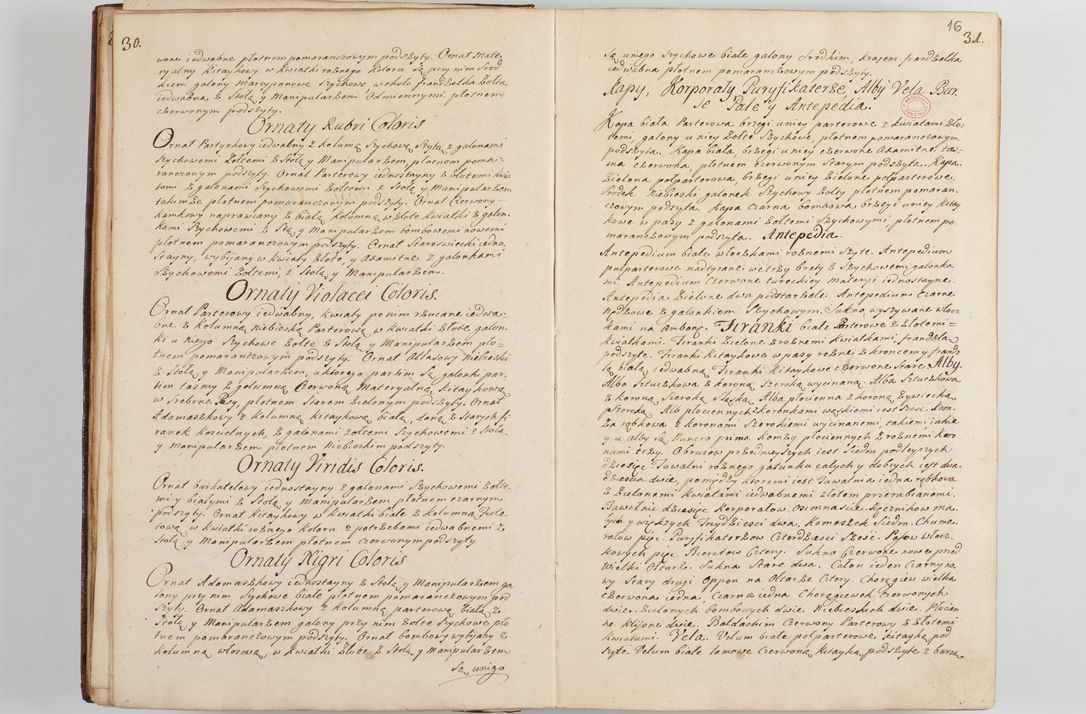 30.
wone iedwabne płotnem pomaranczowym podszyty. Ornat Mate
ryalny kitaykowy w kwiatki roznego koloru Są przy nim Srod
kiem galony Marcypanowe Szychowe wokoło frandzelka żołta
iedwabna, z Stołą y Manipularzem Odmiennymi, płotnem
czerwonym podszyty.
Ornaty Rubri Coloris
Ornat Partyrkowy iedwabny z kolumną Szychową Szytą z galonami
Szychowemi żołtemi z Stołą y Manipularzem, płotnem poma-
ranczowym podszyty. Ornat Parterowy iednostayny z złotemi kwia
tami z galonami Szychowemi żołtemi z Stołą y Manipularzem
takimże płotnem pomaranczowym podszyty. Ornat Czerwony
hamkowy naprawiany z białą kolumną w złote kwiatki z galon-
kami Szychowemi z Stą y Manipularzem bombowemi nowemi
płotnem pomaranczowym podszyty. Ornat Staroswiecki iedno-
Stayny, wybijany w kwiaty złote, y Adamitne z galonkami
Szychowemi żołtemi, z Stołą y Manipularzem.
Ornaty Violacei Coloris.
Ornat Parterowy iedwabny, kwiaty ponim rzucane iedwa-
bne z kolumną niebieską Parterową w kwiatki złote galon-
ki u niego Szychowe żołte z Stołą y Manipularzem pło-
tnem pomaranczowym podszyty. Ornat Atłasowy niebieski
z Stołą y Manipularzem, u ktorego partim Są galonki par-
tim taśmy z golumną Czerwoną Materyalną kitaykową
w Srebrne Pasy, płotnem Starem zielonym podszyty. Ornat
Adamaszkowy z kolumną kitaykową białą, daną z Starych fi
ranek koscielnych, z galonami żołtemi Szychowemi z Stołą
y Manipularzem płotnem Niebieskim podszyty.
Ornaty Viridis Coloris.
Ornat burkatelowy iednostayny z galonami Szychowemi żołte-
mi y białymi z Stołą, Manipularzem płotnem czarnym
podszyty. Ornat kitaykowy w kwiatki białe z kolumną Fiole
tową w kwiatki roznego koloru z potrzebami iedwabnemi z
Stołą y Manipularzem płotnem czerwonym podszyty
Ornaty Nigri Coloris
Ornat Adamaszkowy iednostayny z Stołą y Manipularzem ga
lony przy nim Szychowe białe płotnem pomaranczowym pod
Szyty. Ornat Adamaszkowy z kolumną parterową białą z
Stołą y Manipularzem galony przy nim żołte Szychowe pło
tnem pomaranczowym podszyty. Ornat bombowy wybijany z
kolumną włosową w kwiatki złote z Stołą y Manipularzem
Są uniego
16
31.
Są uniego Szychowe białe galony Srodkiem, krajem frandzelka
iedwabna płotnem pomaranczowym podszyty.
Kapy, Korporały Puryfikaterze, Alby Vela Bur
se Pale y Antepedia.
Kapa biała Parterowa brzegi uniey parterowe z kwiatami zło-
temi, galony u niey żołte Szychowe płotnem pomaranczowym
podszyta. Kapa biała, brzegi u niey czerwone Adamitne taś-
ma czerwona, płotnem czerwonym Starym podszyta. Kapa
zielona połparterowa, brzegi u niey zielone połparterowe,
Srodek Niebieski galonek Szychowy żołty płotnem pomaran-
czowym podszyta. Kapa Czarna bombowa brzegi u niey kitay
kowe w pasy z galonami żołtemi Szychowymi płotnem po-
maranczowym podszyta. Antepedia.
Antepedium białe włoczkami roznemi szyte. Antepedium
pułparterowe nadsypane we trzy brety z Szychowemi galonka-
mi. Antepedium Czerwone tureckiey materyi iednostayne.
Antepedia zielone dwa podstarzałe. Antepedium Czarne
z galonkiem Szychowym. Sukno wyszywane włocz-
kami na Ambonę. Firanki białe Parterowe z złotemi
kwiatkami. Firanki zielone z roznemi kwiatkami, frandzlą
podszyte. Firanki kitaykowe w pasy rozne z koncemy frandz
lą białą iedwabną Firanki kitaykowe czerwone Stare Alby.
Alba Sztuczkowa z koroną Szeroką wycinaną. Alba Sztuczkowa
z koroną Szeroką Slaską Alba płocienna z koroną żywiecką
Szeroką. Alb płociennych z koronkami wąskiemi iest Szesc. Kom
ża rąbkowa z koronami Szerokiemi wycinanemi, takiemi iakie
y u Alby Są Numero primo. Komży płociennych z roznemi koro
nami trzy. Obrusow przednieyszych iest Siedm podleyszych
dziesięc Tuwalni roznego gatunku całych y dobrych iest dwa-
dziescia dwie, pomędzy ktoremi iest Tuwalnia iedna rąbkowa
z zielonemi kwiatami iedwabnemi złotem przerabianemi.
Tuwelnie dziesięc Korporałow Osimnascie Ręcznikow ma-
łych y większych Trzydziesci dwa, Komeszek Siedm. Chume-
rałow pięc Puryfikaterzow Czterdziesci Szesc. Pasow włocz-
kowych pięc Bieretow Cztery. Sukno Czerwone nowe przed
Wielki Ołtarz. Sukna Stare dwa. Całun ieden Czarny no-
wy Stary drugi Oppon na Ołtarze Cztery. Chorągiew wielka
czerwona iedna, Czarna iedna Chorągiewek czerwonych
dwie. zielonych bombowych dwie Niebieskich dwie, Płocien
ne kliione dwie. Baldachim Czerwony Parterowy z złotemi
kwiatami. Vela. Velum białe połparterowe kitayką pod
szyte. Velum białe lamowe Czerwoną kitayką podszyte z